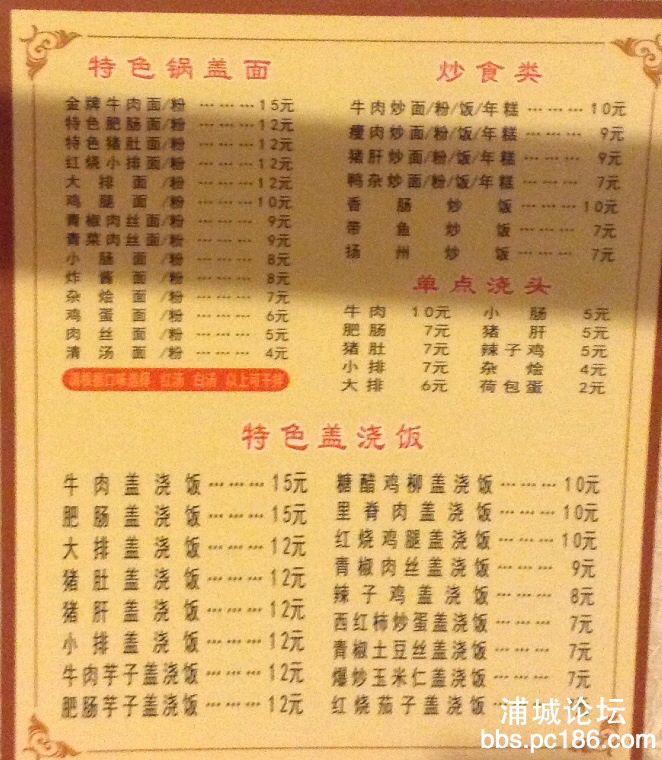 特色锅盖面
金牌牛肉面/粉 ……… 15元
特色肥肠面/粉 ……… 12元
特色猪肚面/粉 ……… 12元
红烧小排面/粉 ……… 12元
大排面/粉 ……… 12元
鸡腿面/粉 ……… 10元
青椒肉丝面/粉 ……… 9元
青菜肉丝面/粉 ……… 9元
小肠面/粉 ……… 8元
炸酱面/粉 ……… 8元
杂烩面/粉 ……… 7元
鸡蛋面/粉 ……… 6元
肉丝面/粉 ……… 5元
清汤面/粉 ……… 4元
请根据口味选择 红汤 白汤 以上可干拌
炒食类
牛肉炒面/粉/饭/年糕 ……… 10元
瘦肉炒面/粉/饭/年糕 ……… 9元
猪肝炒面/粉/饭/年糕 ……… 9元
鸭杂炒面/粉/饭/年糕 ……… 7元
香肠炒饭 ……… 10元
带鱼炒饭 ……… 7元
扬州炒饭 ……… 7元
单点浇头
牛肉 10元 小肠 5元
肥肠 7元 猪肝 5元
猪肚 7元 辣子鸡 5元
小排 7元 杂烩 4元
大排 6元 荷包蛋 2元
特色盖浇饭
牛肉盖浇饭 ……… 15元
肥肠盖浇饭 ……… 15元
大排盖浇饭 ……… 12元
猪肚盖浇饭 ……… 12元
猪肝盖浇饭 ……… 12元
小排盖浇饭 ……… 12元
牛肉芋子盖浇饭 ……… 12元
肥肠芋子盖浇饭 ……… 12元
糖醋鸡柳盖浇饭 ……… 10元
里脊肉盖浇饭 ……… 10元
红烧鸡腿盖浇饭 ……… 10元
青椒肉丝盖浇饭 ……… 9元
辣子鸡盖浇饭 ……… 8元
西红柿炒蛋盖浇饭 ……… 7元
青椒土豆丝盖浇饭 ……… 7元
爆炒玉米仁盖浇饭 ……… 7元
红烧茄子盖浇饭 ………
浦城论坛
bbs.pc186.com